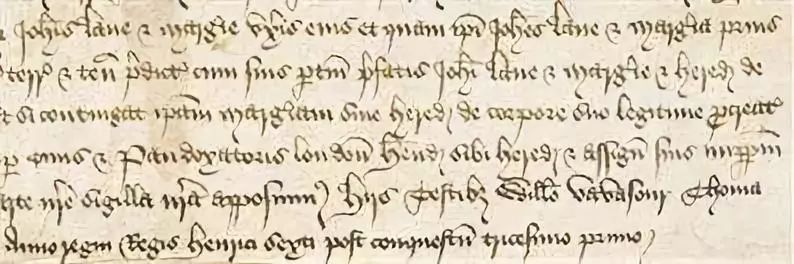 Joh̄is Lane & Marḡie Vx̄is eius et quam ip̄i Joh̄es Lane & Marḡia prius
terr' & ten̄ p̄dict' cum suis p̱tin̄ p̄fatis Joh̄i Lane & Marḡie & hered' de
et si contingat ip̄am Marḡiam sine hered' de corpore suo legitime p̱creat'
Ciuis & Pandoxatoris london̄ h̄end' sibi hered' & assign̄ suis imp̱p̄m
carte nr̄e sigilla nr̄a apposuim' Hijs Testib' Will̄o Vavasour Thoma
Anno regni Regis Henrici sexti post conquestū tricesimo primo